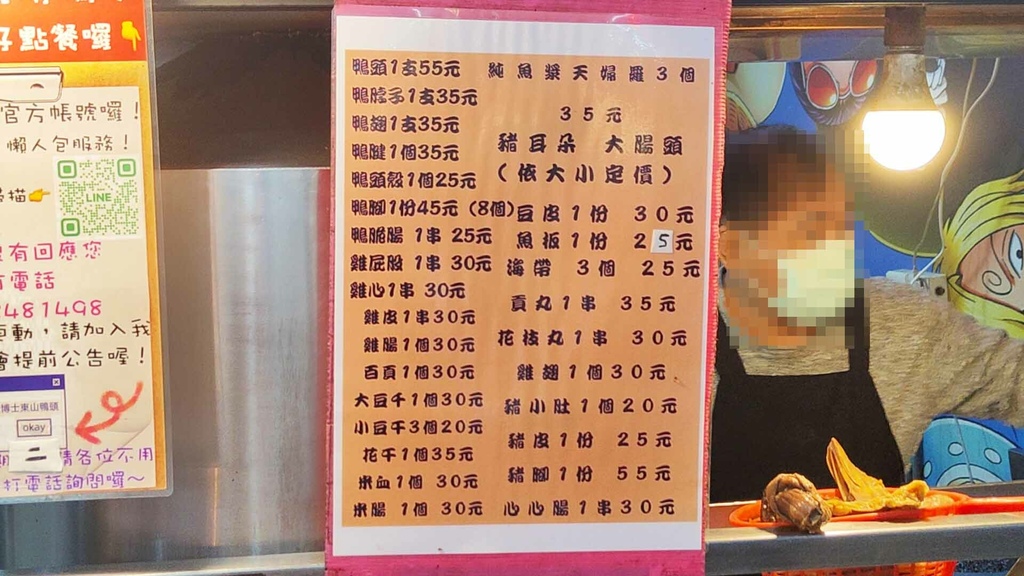 子點餐囉
官方帳號囉！
懶人包服務！
描
LINE
沒有回應您
打電話
2481498
更動，請加入我
會提前公告喔！
博士東山鴨頭
okay
二
請各位不用
打電話詢問囉～
鴨頭1支55元
鴨脖子1支35元
鴨翅1支35元
鴨腱1個35元
鴨頭殼1個25元
鴨腳1份45元 (8個)
鴨脆腸 1串 25元
雞屁股 1串 30元
雞心1串 30元
雞皮1串30元
雞腸1個30元
百頁1個30元
大豆干1個30元
小豆干3個20元
花干1個35元
米血1個 30元
米腸 1個 30元
純魚漿天婦羅3個
35元
豬耳朵 大腸頭
(依大小定價)
豆皮1份 30元
魚板1份 25元
海帶 3個 25元
貢丸1串 35元
花枝丸1串 30元
雞翅1個30元
豬小肚1個20元
豬皮1份 25元
豬腳1份 55元
心心腸1串30元